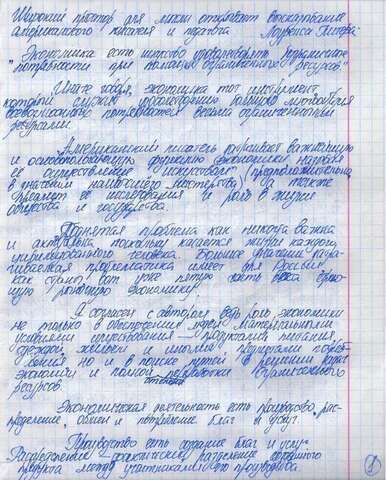 Широкий простор для мысли открывает высказывание
американского писателя и педагога Лоуренса Питера:
"Экономика есть искусство удовлетворять безграничные
потребности при помощи ограниченных ресурсов."
Иначе говоря, экономика тот инструмент
который служит удовлетворению
потребностей весьма ограниченными
ресурсами.
Американский писатель подчёркивает важнейшую
и основополагающую функцию экономики называя
её осуществление "искусством" предположительно
в значении наивысшего мастерства, а также
предмет её исследования и роль в жизни
общества и государства.
Поднятая проблема как никогда важна
и актуальна поскольку касается жизни каждого
цивилизованного человека. Большое значение
проблематика имеет для России,
как страны вот уже
экономику.
Я согласен с автором, ведь роль экономики
не только в обеспечении людей материальными
условиями существования - продуктами питания,
одеждой, жильем и иными предметами потреб-
ления но и в поиске путей в решении задач
экономии и полной разработки ограниченного
ресурсов.
Экономическая деятельность есть производство, рас-
пределение, обмен и потребление благ и услуг.
Производство есть создание благ и услуг.
Распределение - разделение созданного
продукта между участниками его производства.
1